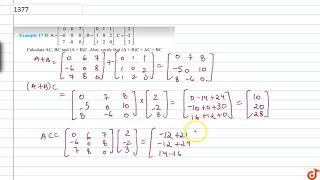 1377
Example 17 If A = [0 6 7 -6 0 8 7 -8 0], B = [0 1 1 1 0 2 1 2 0], C = [2 -2 3]
Calculate AC, BC and (A + B)C. Also, verify that (A + B)C = AC + BC
A+B = [0 6 7 -6 0 8 7 8 0] + [0 1 1 1 0 2 1 2 0] = [0 7 8 -5 0 10 8 -6 0]
(A+B)C
= [0 7 8 -5 0 10 8 -6 0] × [2 -2 3] = [0-14+24 -10+0+30 16+12+0] = [10 20 28]
AC = [0 6 7 -6 0 8 7 8 0] [2 -2 3] = [-12+21 -12+24 14-16]